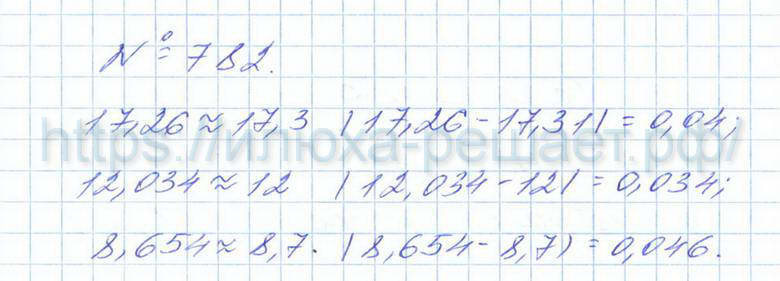 № 782.
17,26 ≈ 17,3 |17,26 - 17,31| = 0,04;
https://илюха-решает.рф/
12,034 ≈ 12 |12,034 - 12| = 0,034;
8,654 ≈ 8,7. |8,654 - 8,7| = 0,046.